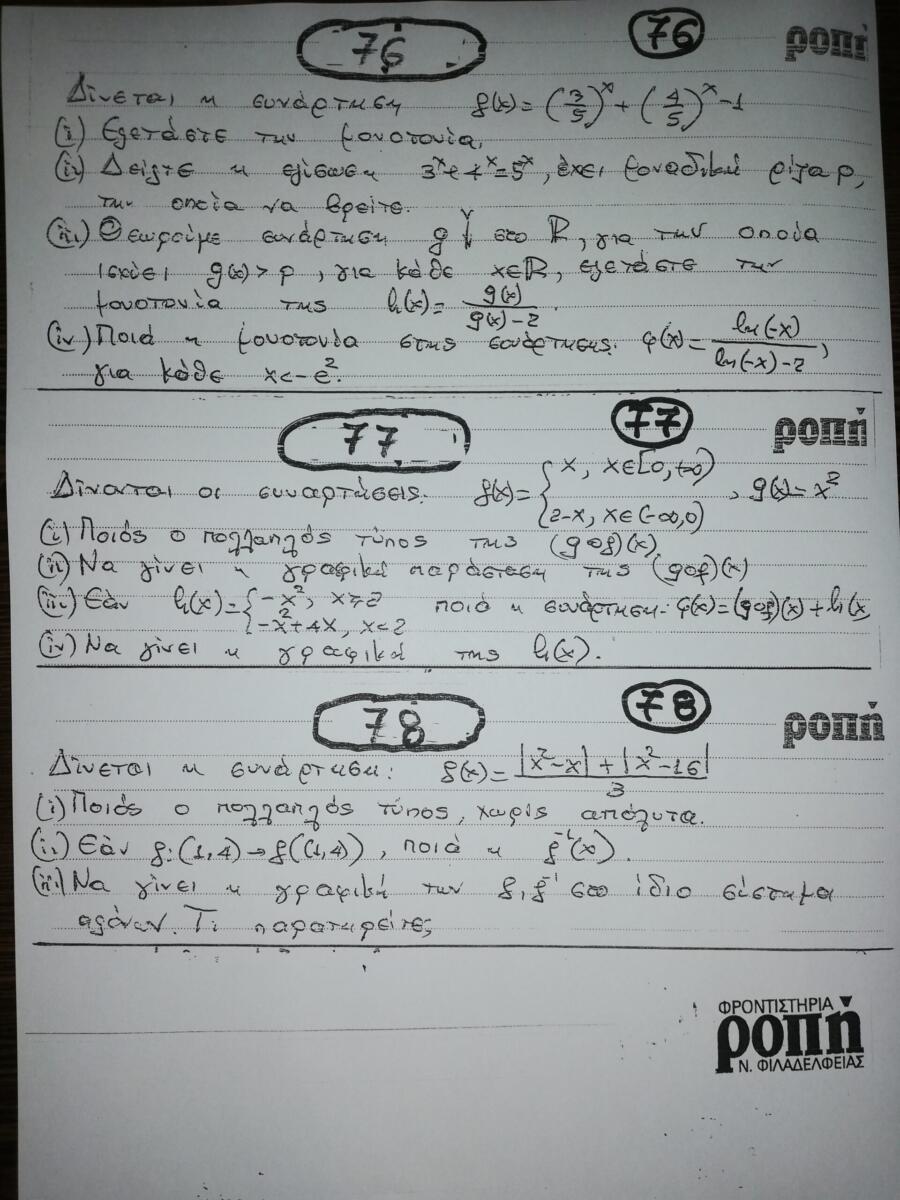 76 76 ροπή
Δίνεται η συνάρτηση f(x)=(3/5)^x+(4/5)^x-1
(i) Εξετάστε την μονοτονία.
(ii) Δείξτε η εξίσωση 3^x+4^x=5^x, έχει μοναδική ρίζα ρ,
την οποία να βρείτε.
(iii) Θεωρούμε συνάρτηση g ↓ στο ℝ, για την οποία
ισχύει g(x)>ρ, για κάθε x∈ℝ, εξετάστε την
μονοτονία της h(x)= g(x)/(g(x)-2).
(iv) Ποιά η μονοτονία στης συνάρτησης. φ(x)= ln(-x)/(ln(-x)-2),
για κάθε x<-e^2.
77 77 ροπή
Δίνονται οι συναρτήσεις. f(x)={x, x∈[0,+∞)
2-x, x∈(-∞,0) , g(x)=x^2
(i) Ποιός ο πολλαπλός τύπος της (gof)(x)
(ii) Να γίνει η γραφική παράσταση της (gof)(x)
(iii) Εάν h(x)={-x^2, x≥2
-x^2+4x, x<2 ποιά η συνάρτηση. φ(x)=(gof)(x)+h(x
(iv) Να γίνει η γραφική της h(x).
78 78 ροπή
Δίνεται η συνάρτηση: f(x)= (|x^2-x|+|x^2-16|)/3
(i) Ποιός ο πολλαπλός τύπος, χωρίς απόλυτα.
(ii) Εάν f:(1,4)→f((1,4)), ποιά η f^-1(x).
(iii) Να γίνει η γραφική των f, f^-1 στο ίδιο σύστημα
αξόνων. Τι παρατηρείτε;
ΦΡΟΝΤΙΣΤΗΡΙΑ
ροπή
Ν. ΦΙΛΑΔΕΛΦΕΙΑΣ